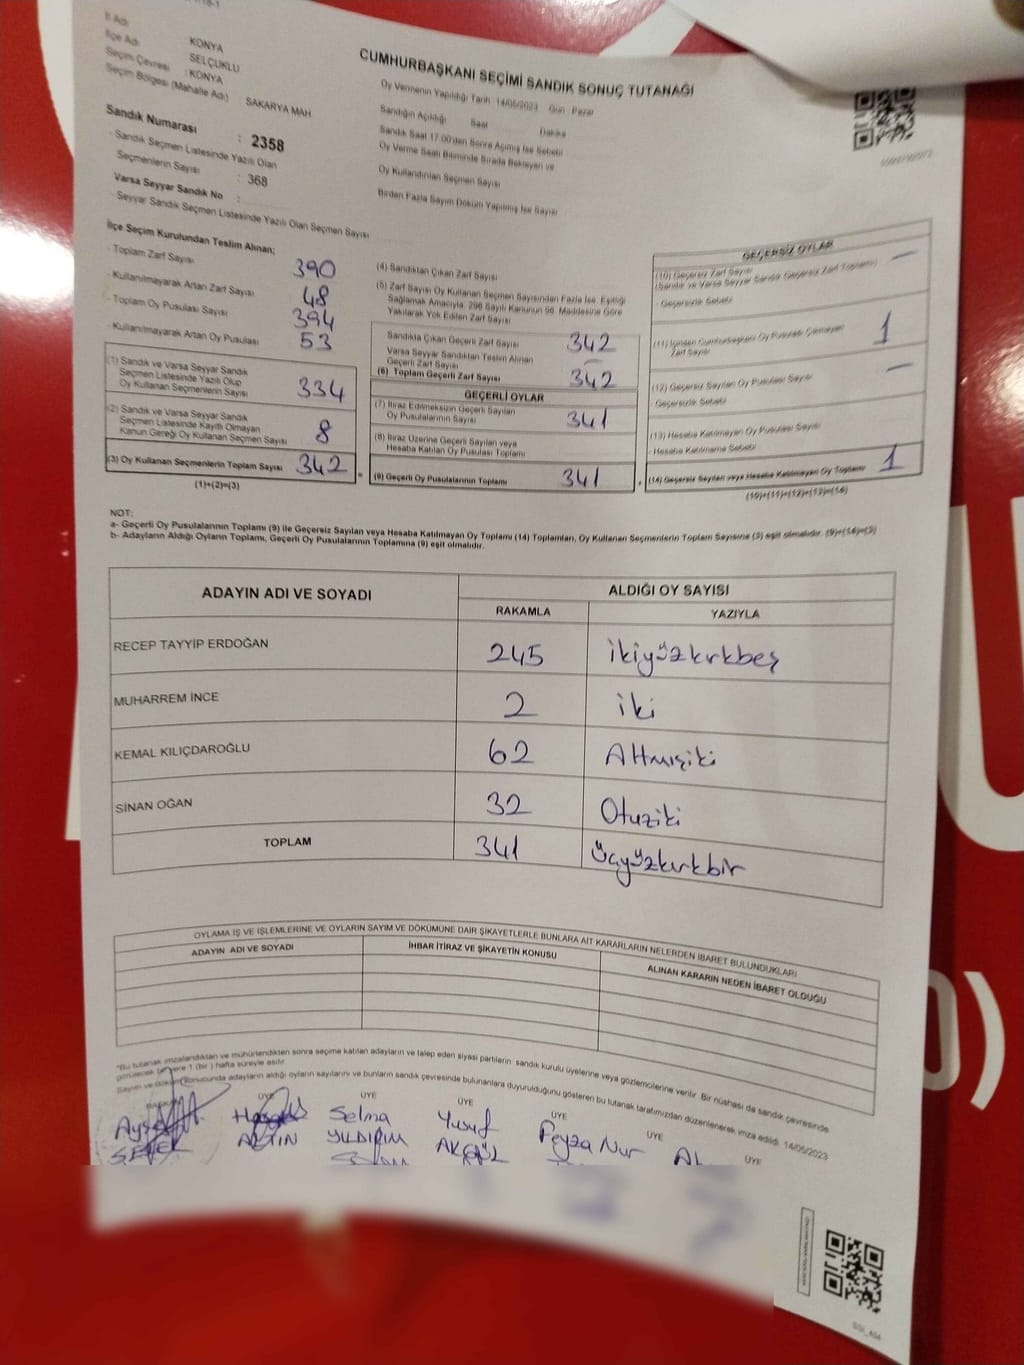 İl Adı : KONYA
İlçe Adı : SELÇUKLU
Seçim Çevresi : KONYA
Seçim Bölgesi (Mahalle Adı) : SAKARYA MAH
CUMHURBAŞKANI SEÇİMİ SANDIK SONUÇ TUTANAĞI
Oy Vermenin Yapıldığı Tarih: 14/05/2023 Gün : Pazar
Sandığın Açıldığı Saat Dakika
Sandık Saat 17.00'den Sonra Açılmış İse Sebebi
Oy Verme Saati Bitiminde Sırada Bekleyen ve
Oy Kullandırılan Seçmen Sayısı
Birden Fazla Sayım Döküm Yapılmış İse Sayısı
Sandık Numarası : 2358
- Sandık Seçmen Listesinde Yazılı Olan
Seçmenlerin Sayısı : 368
Varsa Seyyar Sandık No :
- Seyyar Sandık Seçmen Listesinde Yazılı Olan Seçmen Sayısı
İlçe Seçim Kurulundan Teslim Alınan;
- Toplam Zarf Sayısı 390
- Kullanılmayarak Artan Zarf Sayısı 48
- Toplam Oy Pusulası Sayısı 394
- Kullanılmayarak Artan Oy Pusulası 53
(1) Sandık ve Varsa Seyyar Sandık
Seçmen Listesinde Yazılı Olup
Oy Kullanan Seçmenlerin Sayısı 334
(2) Sandık ve Varsa Seyyar Sandık
Seçmen Listesinde Kayıtlı Olmayan
Kanun Gereği Oy Kullanan Seçmen Sayısı 8
(3) Oy Kullanan Seçmenlerin Toplam Sayısı 342
(1)+(2)=(3)
(4) Sandıktan Çıkan Zarf Sayısı
(5) Zarf Sayısı Oy Kullanan Seçmen Sayısından Fazla İse, Eşitliği
Sağlamak Amacıyla, 298 Sayılı Kanunun 98. Maddesine Göre
Yakılarak Yok Edilen Zarf Sayısı
Sandıkta Çıkan Geçerli Zarf Sayısı 342
Varsa Seyyar Sandıktan Teslim Alınan
Geçerli Zarf Sayısı —
(6) Toplam Geçerli Zarf Sayısı 342
GEÇERLİ OYLAR
(7) İtiraz Edilmeksizin Geçerli Sayılan
Oy Pusulalarının Sayısı 341
(8) İtiraz Üzerine Geçerli Sayılan veya
Hesaba Katılan Oy Pusulası Toplamı
(9) Geçerli Oy Pusulalarının Toplamı 341
GEÇERSİZ OYLAR
(10) Geçersiz Zarf Sayısı —
(Sandık ve Varsa Seyyar Sandık Geçersiz Zarf Toplamı)
- Geçersizlik Sebebi
(11) İçinden Cumhurbaşkanı Oy Pusulası Çıkmayan
Zarf Sayısı 1
(12) Geçersiz Sayılan Oy Pusulası Sayısı —
- Geçersizlik Sebebi
(13) Hesaba Katılmayan Oy Pusulası Sayısı
- Hesaba Katılmama Sebebi
(14) Geçersiz Sayılan veya Hesaba Katılmayan Oy Toplamı 1
(10)+(11)+(12)+(13)=(14)
NOT:
a- Geçerli Oy Pusulalarının Toplamı (9) ile Geçersiz Sayılan veya Hesaba Katılmayan Oy Toplamı (14) Toplamları, Oy Kullanan Seçmenlerin Toplam Sayısına (3) eşit olmalıdır. (9)+(14)=(3)
b- Adayların Aldığı Oyların Toplamı, Geçerli Oy Pusulalarının Toplamına (9) eşit olmalıdır.
ADAYIN ADI VE SOYADI ALDIĞI OY SAYISI
RAKAMLA YAZIYLA
RECEP TAYYİP ERDOĞAN 245 ikiyüzkırkbeş
MUHARREM İNCE 2 iki
KEMAL KILIÇDAROĞLU 62 Altmışiki
SİNAN OĞAN 32 Otuziki
TOPLAM 341 üçyüzkırkbir
OYLAMA İŞ VE İŞLEMLERİNE VE OYLARIN SAYIM VE DÖKÜMÜNE DAİR ŞİKAYETLERLE BUNLARA AİT KARARLARIN NELERDEN İBARET BULUNDUKLARI
ADAYIN ADI VE SOYADI İHBAR İTİRAZ VE ŞİKAYETİN KONUSU ALINAN KARARIN NEDEN İBARET OLDUĞU
*Bu tutanak imzalandıktan ve mühürlendikten sonra seçime katılan adayların ve talep eden siyasi partilerin sandık kurulu üyelerine veya gözlemcilerine verilir. Bir nüshası da sandık çevresinde
görülecek bir yere 1 (bir ) hafta süreyle asılır.
Sayım ve döküm sonucunda adayların aldığı oyların sayılarını ve bunların sandık çevresinde bulunanlara duyurulduğunu gösteren bu tutanak tarafımızdan düzenlenerek imza edildi. 14/05/2023
BAŞKAN ÜYE ÜYE ÜYE ÜYE ÜYE ÜYE
Selma Yusuf Feyza Nur
ALTIN YILDIRIM AKGÜL